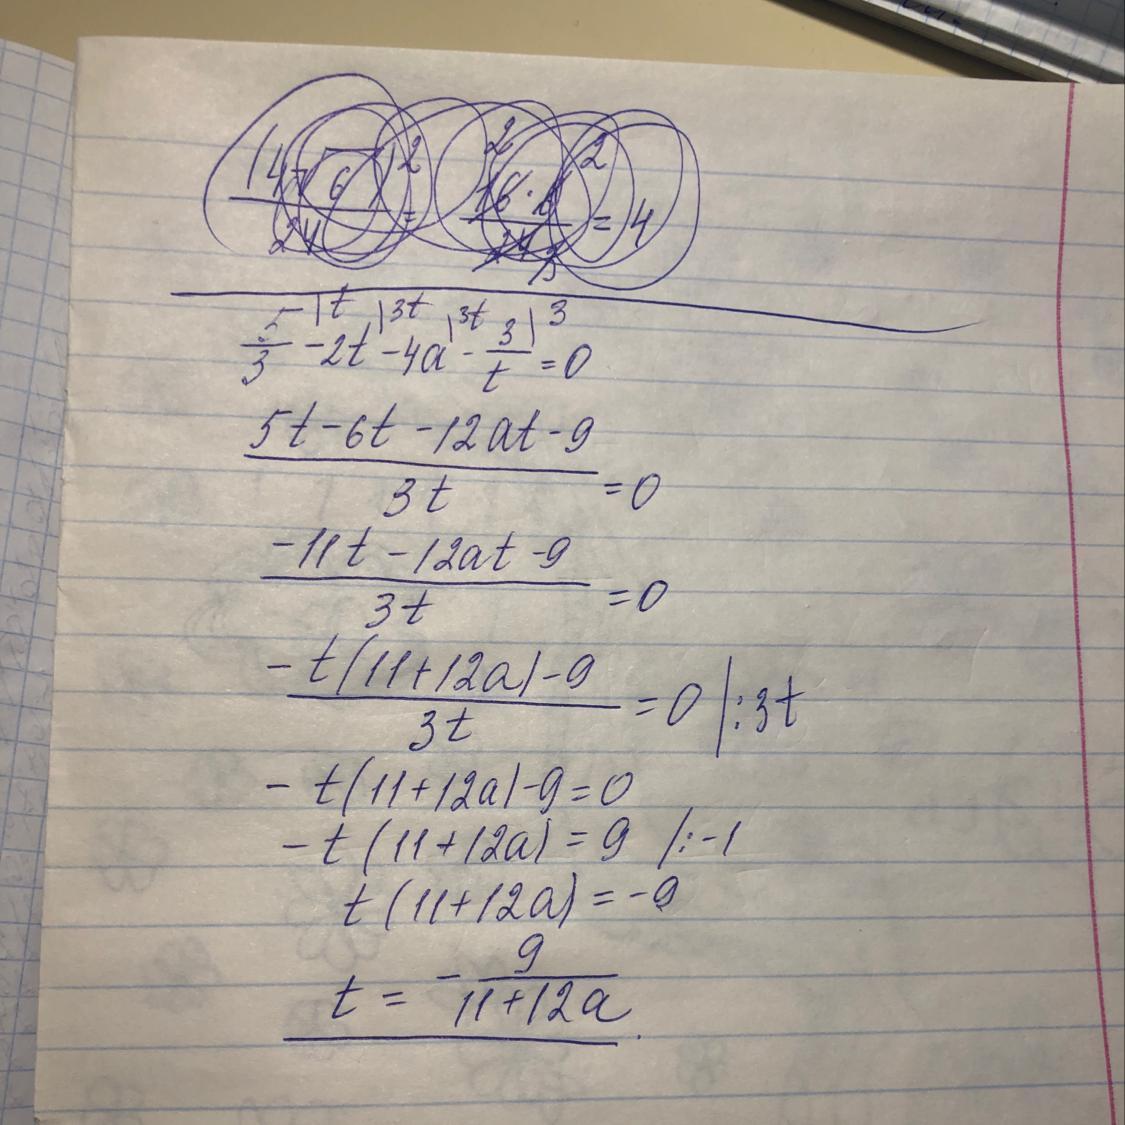 5/3 |t - 2t |3t - 4a |3t - 3/t |3 = 0
(5t - 6t - 12at - 9)/3t = 0
(-11t - 12at - 9)/3t = 0
(-t(11+12a) - 9)/3t = 0 |:3t
- t(11+12a) - 9 = 0
- t(11+12a) = 9 |:-1
t(11+12a) = -9
t = - 9/(11+12a).